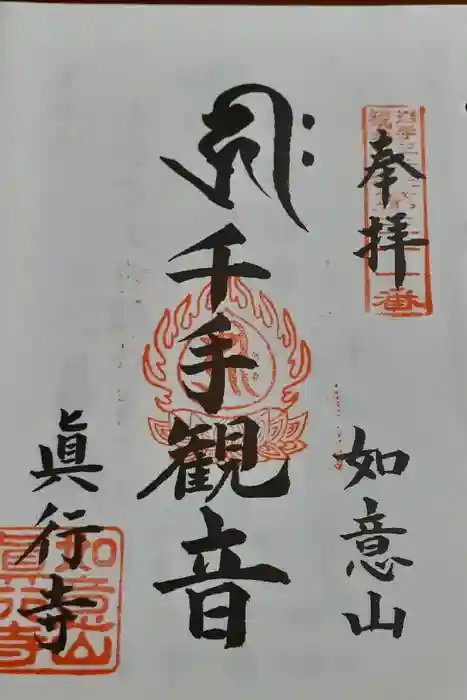 奉拝
如意山
千手観音
眞行寺
如意山
眞行寺